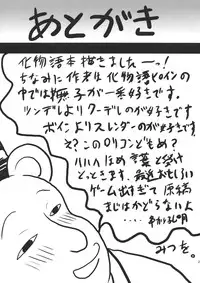 あとがき
化物語本描きましたーっ!
ちなみに作者は化物語ヒロインの
中では撫子が一番好きです。
ツンデレよりクーデレのが好きです
ボインよりスレンダーのが好きです
え?このロリコンどもめ?
ハハハほめ言葉と受け
とっときます。最近おもしろい
ゲーム出すぎて原稿
まじはかどらないよ
みつを。